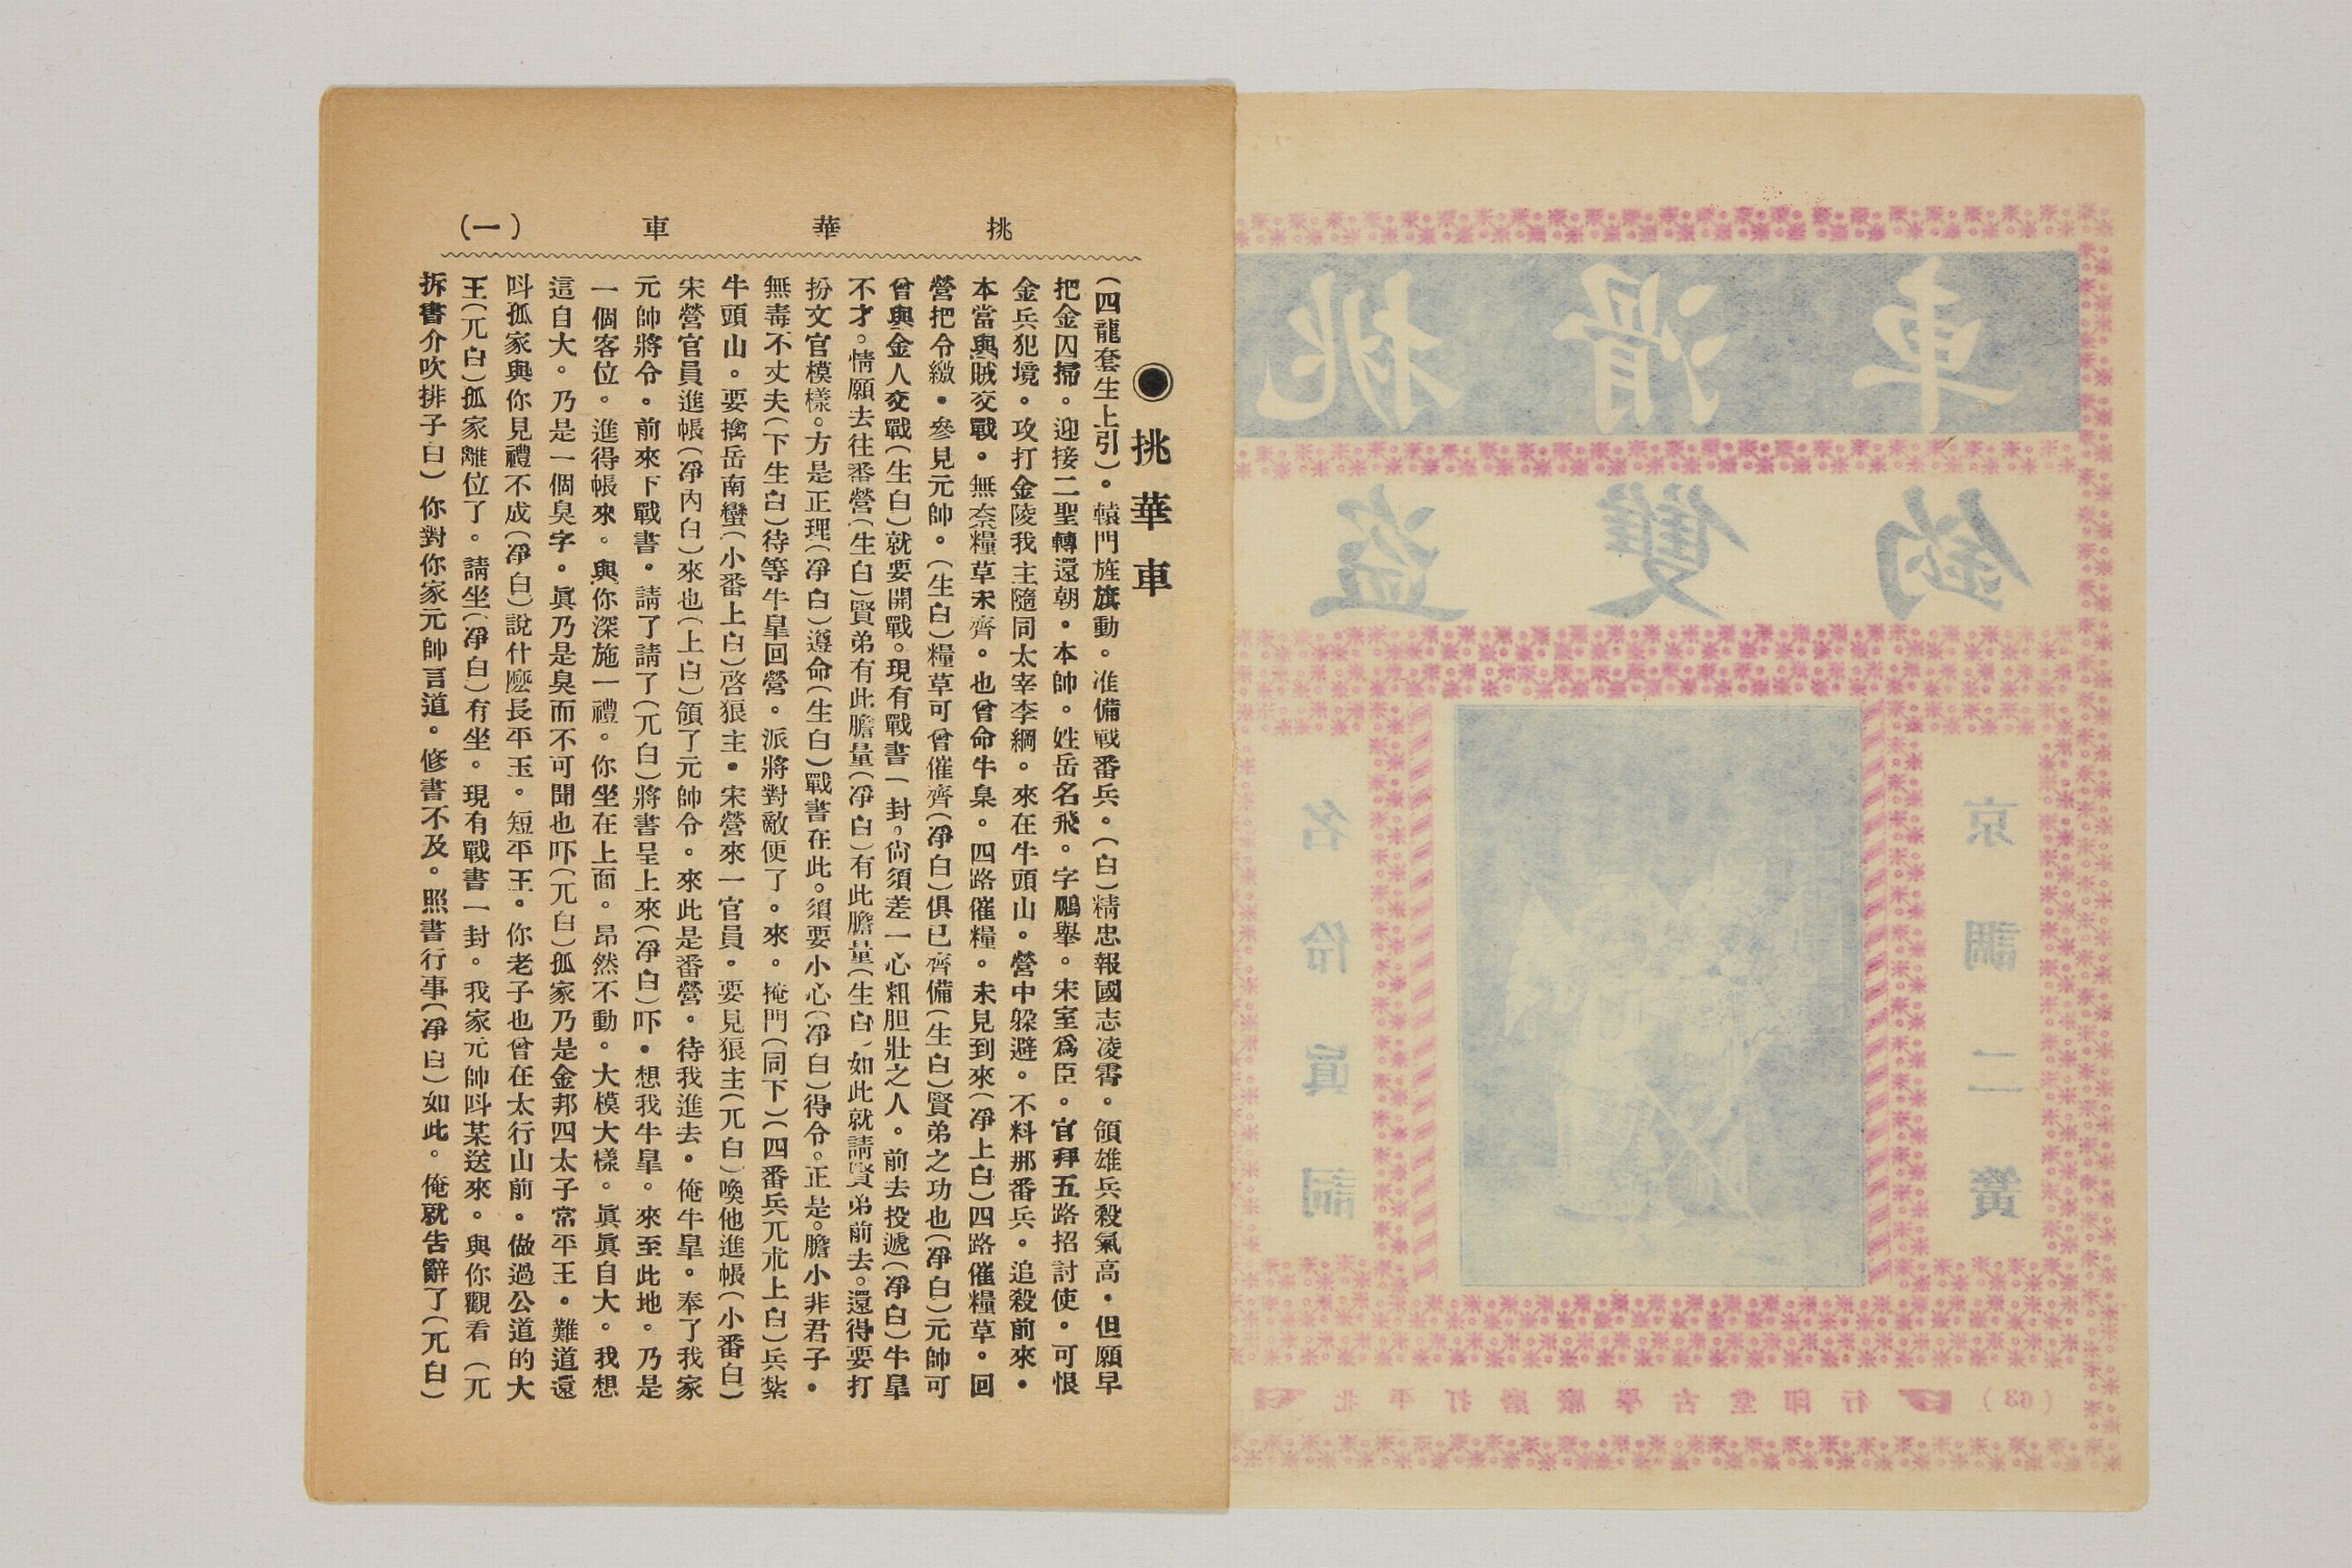 挑華車
(一)
●挑華車
(四龍套生上引)。轅門旌旗動。准備戰番兵。(白)精忠報國志凌霄。領雄兵殺氣高。但願早
把金囚掃。迎接二聖轉還朝。本帥。姓岳名飛。字鵬舉。宋室爲臣。官拜五路招討使。可恨
金兵犯境。攻打金陵我主隨同太宰李綱。來在牛頭山。營中躱避。不料那番兵。追殺前來。
本當與賊交戰。無奈糧草未齊。也曾命牛臯。四路催糧。未見到來(凈上白)四路催糧草。回
營把令繳。參見元帥。(生白)糧草可曾催齊(凈白)俱已齊備(生白)賢弟之功也(凈白)元帥可
曾與金人交戰(生白)就要開戰。現有戰書一封。尙須差一心粗胆壯之人。前去投遞(凈白)牛臯
不才。情願去往番營(生白)賢弟有此膽量(凈白)有此膽量(生白)如此就請賢弟前去。還得要打
扮文官模樣。方是正理(凈白)遵命(生白)戰書在此。須要小心(凈白)得令。正是。膽小非君子。
無毒不丈夫(下生白)待等牛臯回營。派將對敵便了。來。掩門(同下)(四番兵兀朮上白)兵紮
牛頭山。要擒岳南蠻(小番上白)啓狼主。宋營來一官員。要見狼主(兀白)喚他進帳(小番白)
宋營官員進帳(凈內白)來也(上白)領了元帥令。來此是番營。待我進去。俺牛臯。奉了我家
元帥將令。前來下戰書。請了請了(兀白)將書呈上來(凈白)吓。想我牛臯。來至此地。乃是
一個客位。進得帳來。與你深施一禮。你坐在上面。昂然不動。大模大樣。眞眞自大。我想
這自大。乃是一個臭字。眞乃是臭而不可聞也吓(兀白)孤家乃是金邦四太子常平王。難道還
呌孤家與你見禮不成(凈白)說什麽長平玉。短平王。你老子也曾在太行山前。做過公道的大
王(兀白)孤家離位了。請坐(凈白)有坐。現有戰書一封。我家元帥呌某送來。與你觀看(兀
拆書介吹排子白)你對你家元帥言道。修書不及。照書行事(凈白)如此。俺就告辭了(兀白)
挑滑車
盜雙鈎
京調二簧
名伶眞詞
(63)北平打磨廠學古堂印行